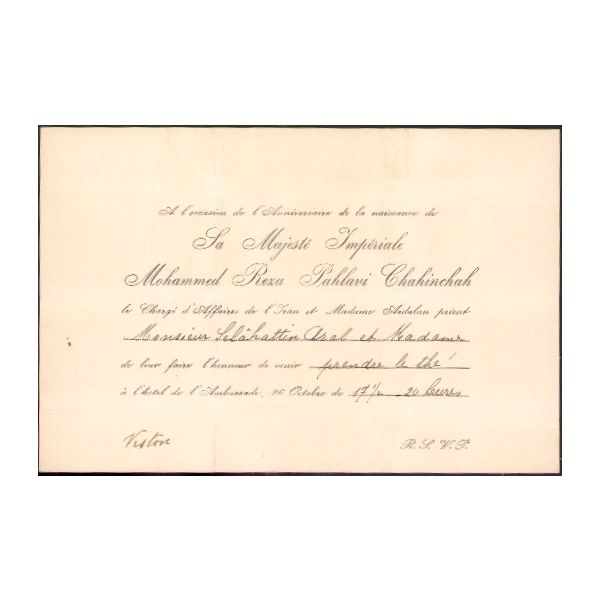 A l'occasion de l'Anniversaire de la naissance de
Sa Majesté Impériale
Mohammed Reza Pahlavi Chahinchah
le Chargé d'Affaires de l'Iran et Madame Ardalan prient
Monsieur Selâhattin Aral et Madame
de leur faire l'honneur de venir prendre le thé
à l'hôtel de l'Ambassade, 26 Octobre de 17 1/2 - 20 heures
Veston
R. S. V. P.